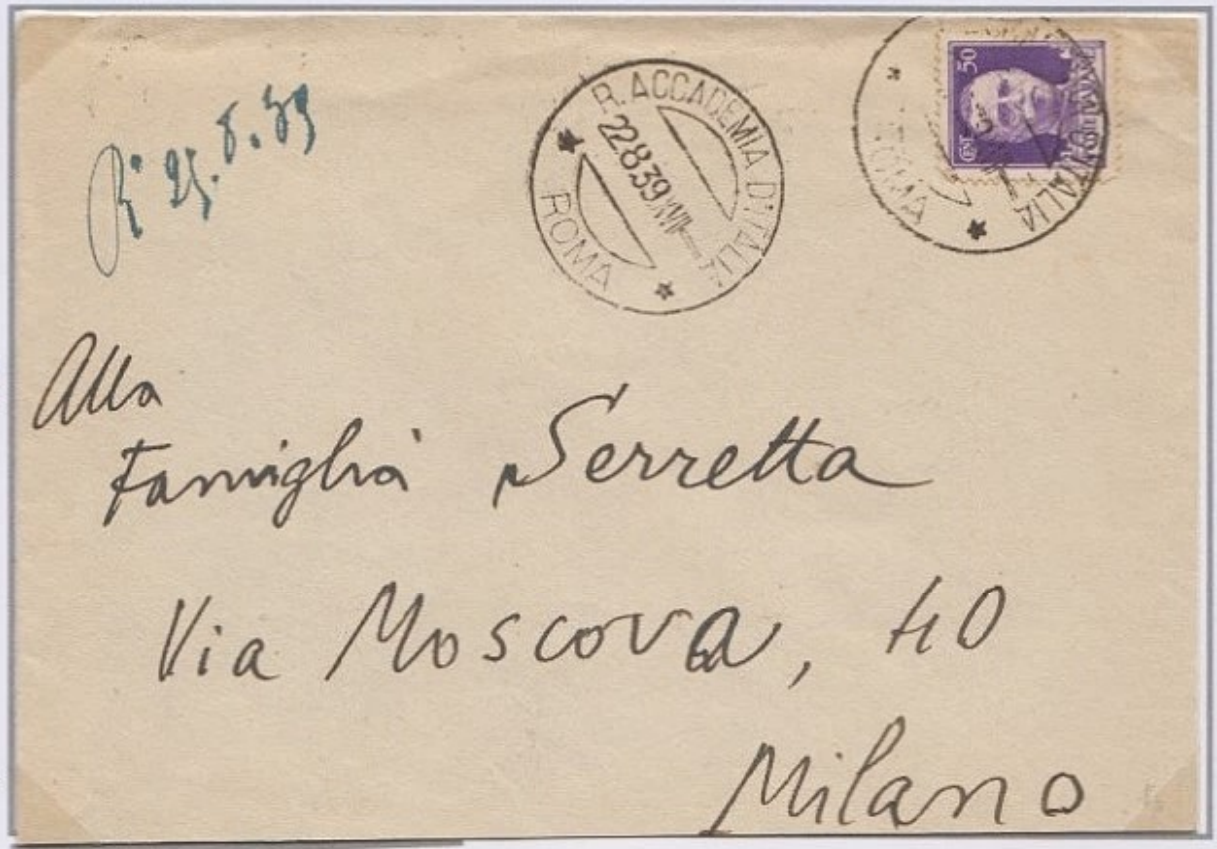 R. 25.8.39
R. ACCADEMIA D'ITALIA
22839 XVII
ROMA
CENT 50
D'ITALIA
ROMA
Alla
Famiglia Serretta
Via Moscova, 40
Milano